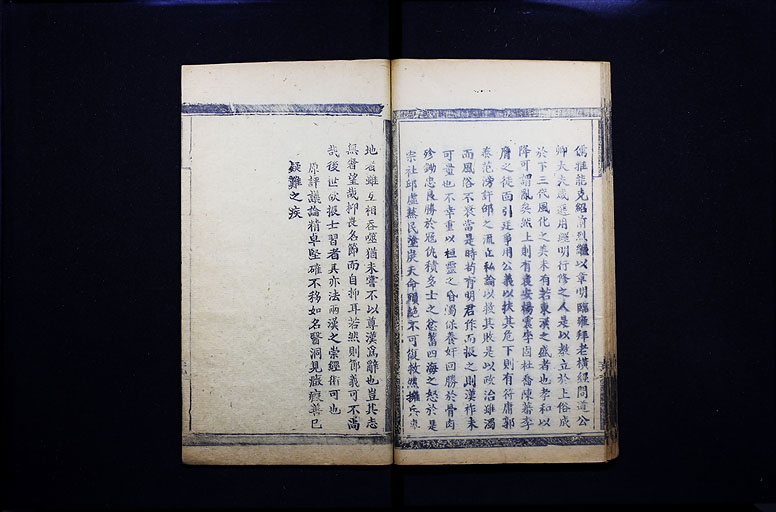 儒雅能克紹前烈繼以章明臨雍拜老橫經問道公
卿大夫咸選用經明行修之人是以教立於上俗成
於下三代風化之美未有若東漢之盛者也孝和以
降可謂亂矣然上則有袁安楊震李固杜喬陳蕃李
膺之徒面引廷爭用公義以扶其危下則有符庸郭
泰范滂許邵之流立私論以救其敗是以政治雖濁
而風俗不衰當是時苟有明君作而振之則漢祚未
可量也不幸重以桓靈之昏濁保養奸回勝於骨肉
殄鋤忠良勝於冠仇積多士之忿蓄四海之怒於是
宗社邱虛烝民塗炭天命隕絕不可復救然擁兵專
地者雖互相吞噬猶未嘗不以尊漢為辭也豈其志
無覬望哉抑畏名節而自抑耳若然則節義可不尚
哉後世欲振士習者其亦法兩漢之崇經術可也
原評議論精卓堅確不移如名醫洞見癥癥藥已
疑難之疾